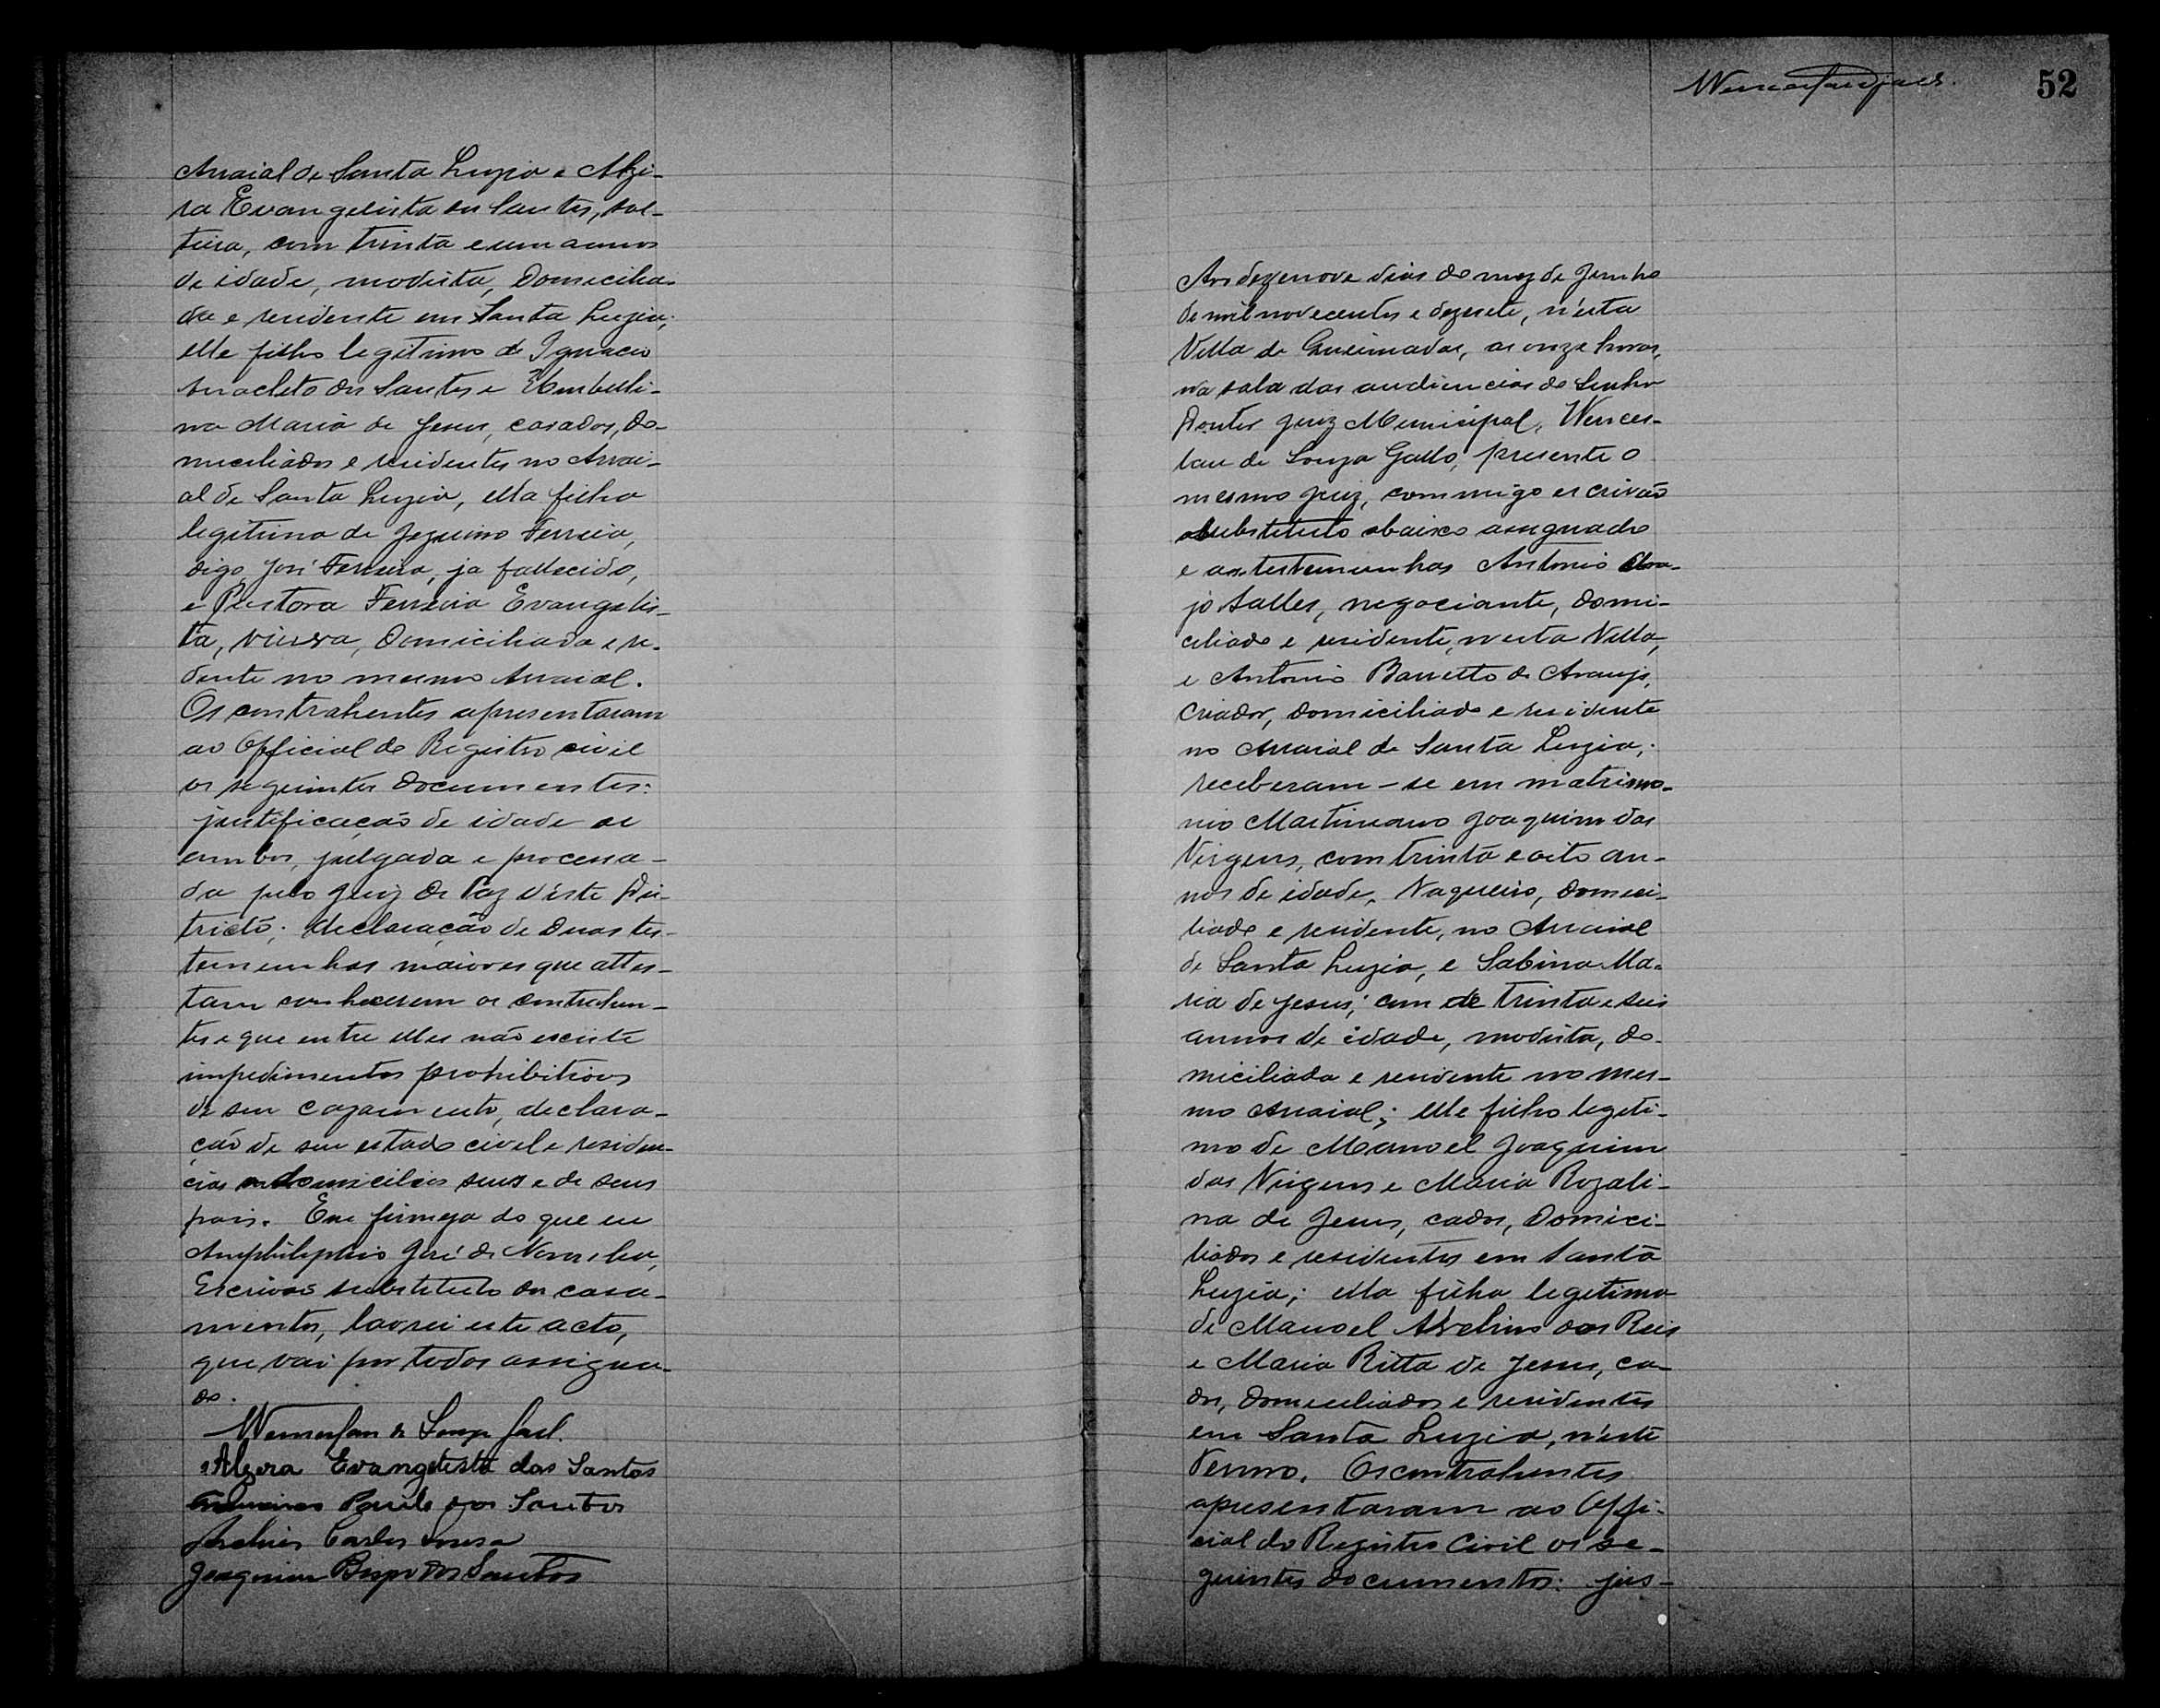 Arraial de Santa Luzia e Alzi-
ra Evangelista dos Santos, sol-
teira, com trinta e um annos
de idade, modista, domicilia-
da e residente em Santa Luzia;
elle filho legitimo de Ignacio
Anacleto dos Santos e Umbeli-
na Maria de Jesus, casados, do-
miciliados e residentes no Arrai-
al de Santa Luzia, ella filha
legitima de Jezuino Ferreira,
digo, José Ferreira, ja fallecido,
e Pastora Ferreira Evangelis-
ta, viuva, domiciliada e re-
dente no mesmo Arraial.
Os contrahentes apresentaram
ao Official do Registro civil
os seguintes documentos:
justificação de idade de
ambos, julgada e processa-
da pelo Juiz de Paz d'este Dis-
tricto; declaração de duas tes-
temunhas maiores que attes-
tam conhecerem os contrahen-
tes e que entre elles não existe
impedimentos prohibitivos
de seu cazamento, declara-
ção de seu estado civel e residen-
cias domicilios seus e de seus
pais. Em firmeza do que eu
Amphilophio José de Noronha,
Escrivão substituto dos casa-
mentos, lavrei este acto,
que vai por todos assigna-
do.
Wenceslau de Souza Gall.
Alzera Evangelista dos Santos
Paulo dos Santos
Carlos Sousa
Joaquim Bispo dos Santos
52
Aos dezenove dias do mez de Junho
de mil novecentos e dezesete, n'esta
Villa de Queimadas, as onze horas,
na sala das audiencias do Senhor
Doutor Juiz Municipal, Wences-
lau de Souza Gallo, presente o
mesmo Juiz, commigo escrivão
substituto abaixo assignado
e as testemunhas Antonio Arau-
jo Salles, negociante, domi-
ciliado e residente, nesta Villa,
e Antonio Barretto de Araujo,
criador, domiciliado e residente
no Arraial de Santa Luzia;
receberam-se em matrimo-
nio Martiniano Joaquim das
Virgens, com trinta e oito an-
nos de idade, Vaqueiro, domici-
liado e residente, no Arraial
de Santa Luzia, e Sabina Ma-
ria de Jesus; com de trinta e seis
annos de idade, modista, do-
miciliada e residente no mes-
mo Arraial; elle filho legiti-
mo de Manoel Joaquim
das Virgens e Maria Rozali-
na de Jesus, cados, domici-
liados e residentes em Santa
Luzia; ella filha legitima
de Manoel Avelino dos Reis
e Maria Ritta de Jesus, ca-
dos, domiciliados e residentes
em Santa Luzia, n'este
Termo. Os contrahentes
apresentaram ao Offi-
cial do Registro Civil os se-
guintes documentos: jus-